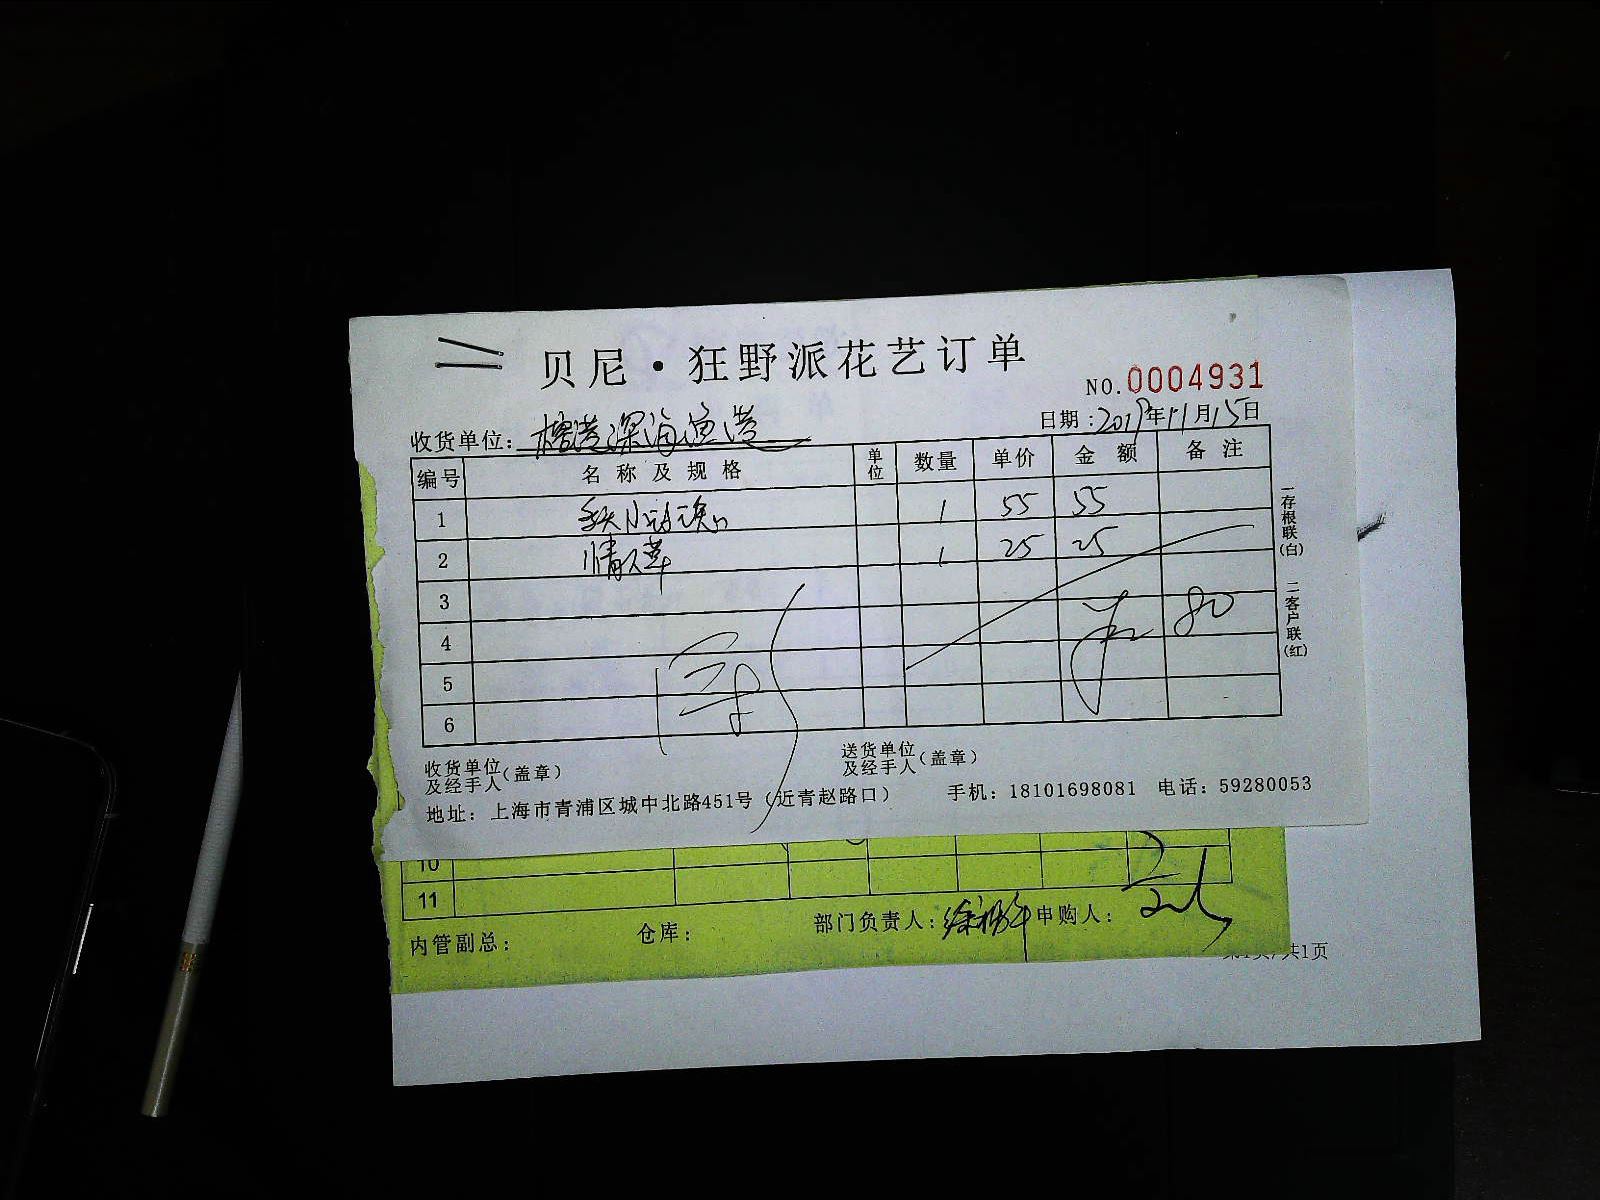 贝尼·狂野派花艺订单
NO.0004931
日期:2019年11月15日
收货单位: 深海渔港
编号 名称及规格 单位 数量 单价 金额 备注
1 1 55 55
2 情人草 1 25 25
3
4 80
5
6
一存根联(白)
二客户联(红)
收货单位及经手人(盖章)
送货单位及经手人(盖章)
地址: 上海市青浦区城中北路451号(近青赵路口) 手机: 18101698081 电话: 59280053
10
11
内管副总: 仓库: 部门负责人: 申购人:
第1页/共1页